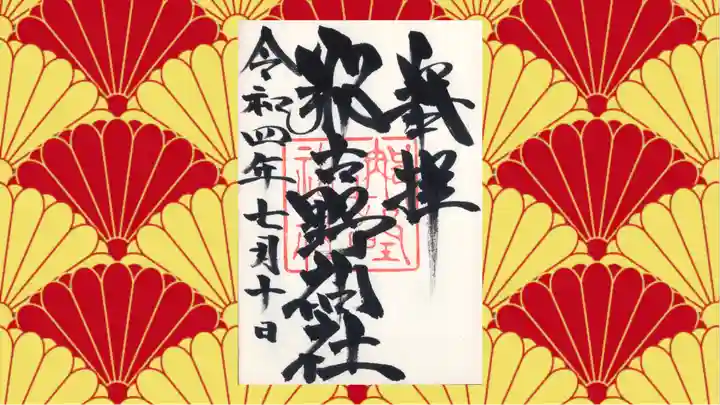 奉拝
那古野神社
令和四年七月十日